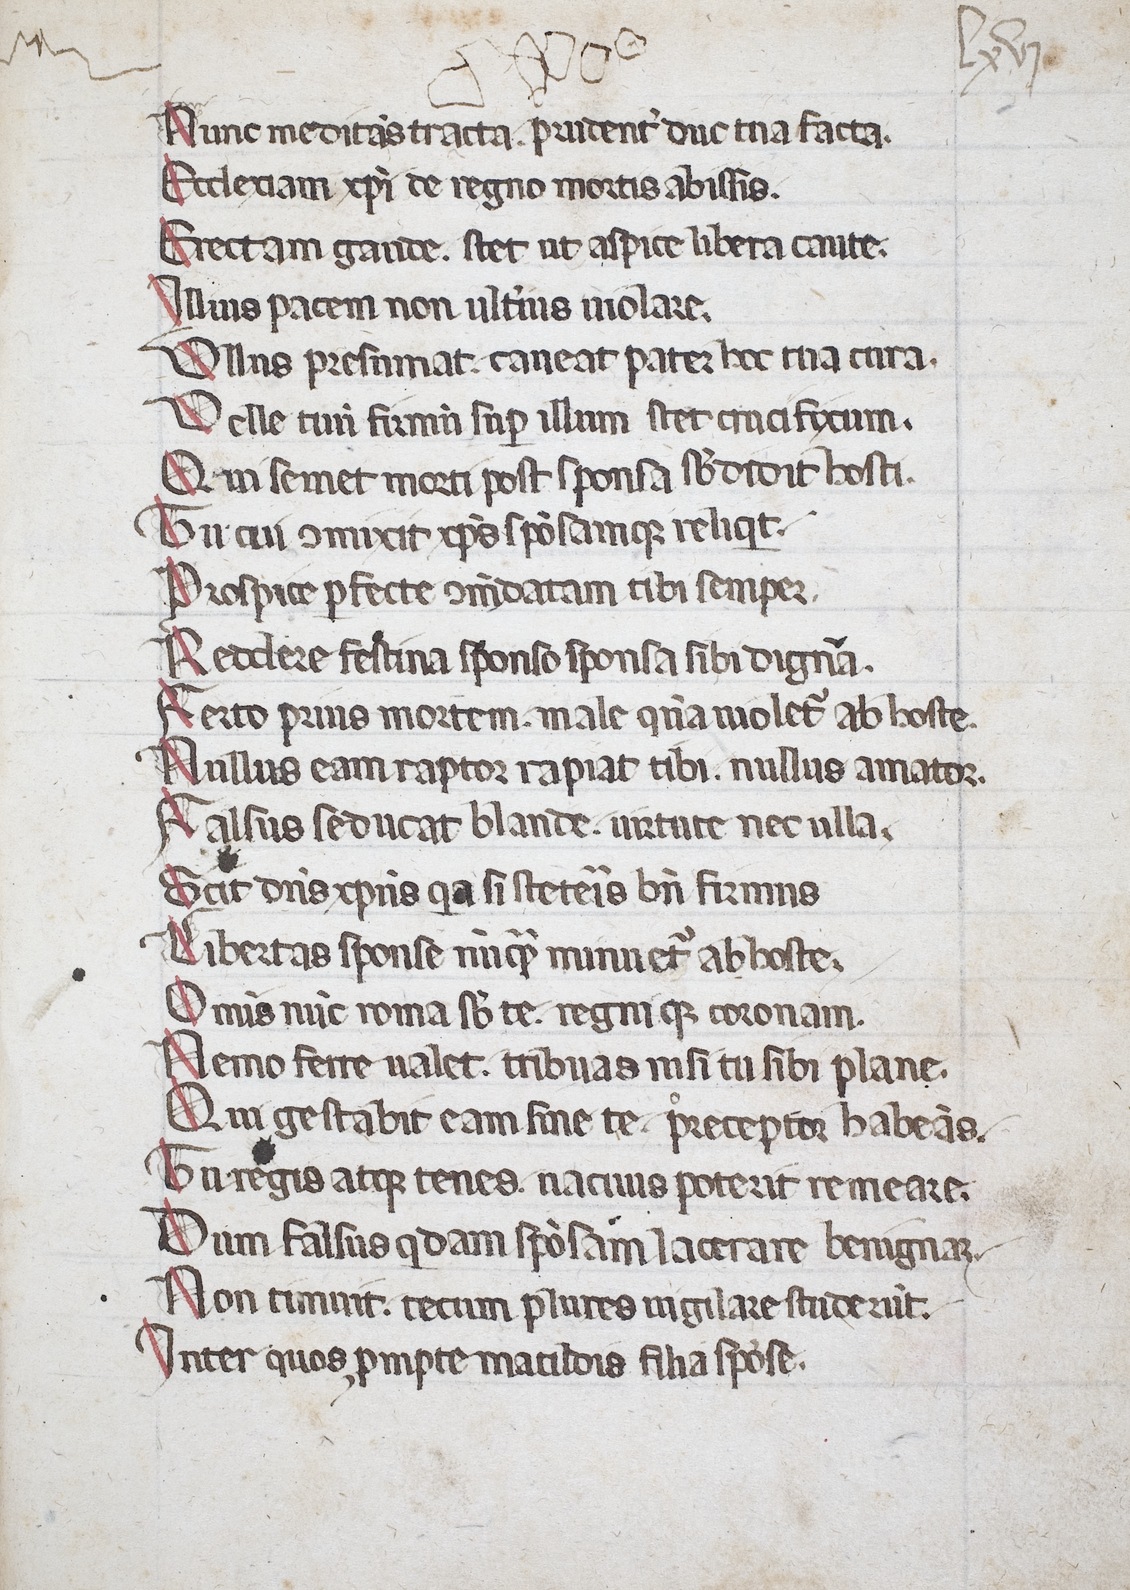 lxvi
Nunc meditās tracta. prudent᾽ duc tua facta.
Ecclexiam xp̄i de regno mortis abissis.
Erectam gaude. stet ut aspice libera caute.
Illius pacem non ult᾽ius uiolare.
Vllus presumat. caueat pater hoc tua cura.
Velle tuū firmū sup̱ illum stet crucifyxum.
Qui semet morti post sponsa sb᾽didit hosti.
Tu cui ꝯmixit xp̄s spōsamqꝫ reliqit.
Prospice ꝑfecte ꝯm̄datam tibi semper.
Reddere festina sponso sponsa sibi dignā.
Ferto prius mortem. male qͥn uiolet᾽ ab hoste.
Nullus eam raptor rapiat tibi. nullus amator.
Falsus seducat blande. uirtute nec ulla.
Scit dn̄s xp̄us qa si stetēis bn̄ firmus
Libertas sponse nūqͣ minuet᾽ ab hoste.
Omīs nūc roma sb᾽ te. regni qꝫ coronam.
Nemo ferre ualet. tribuas nisi tu sibi plane.
Qui gestabit eam sine te. preceptor habeās.
Tu regis atqꝫ tenes. nacuus poterit remeare.
Dum falsus qͥdam spōsam lacerare benignaꝫ.
Non timuit. tecum plures uigilare studerūt.
Inter quos ꝓmpte matildis filia spōse.